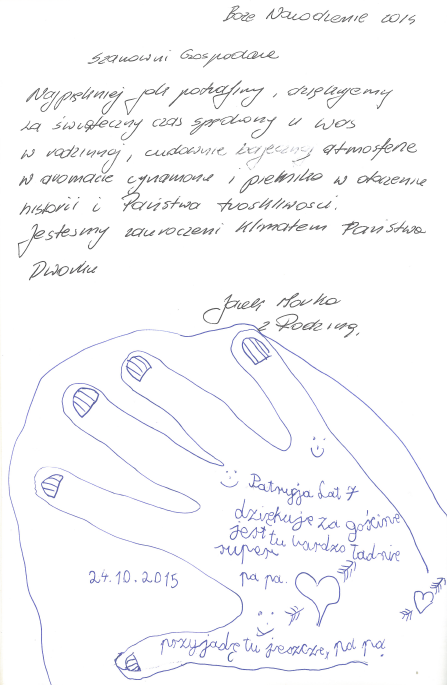 Boże Narodzenie 2015
Szanowni Gospodarze
Najpiękniej jak potrafimy, dziękujemy
za świąteczny czas spędzony u Was
w rodzinnej, cudownie bajecznej atmosferze
w aromacie cynamonu i piernika w otoczeniu
historii i Państwa troskliwości.
Jesteśmy zauroczeni klimatem Państwa
Dworku
Jacek
z Rodziną.
Patrycja Lat 7
dziękuję za gościnę
jest tu bardzo ładnie
super
24.10.2015
pa pa.
przyjadę tu jeszcze, pa pa